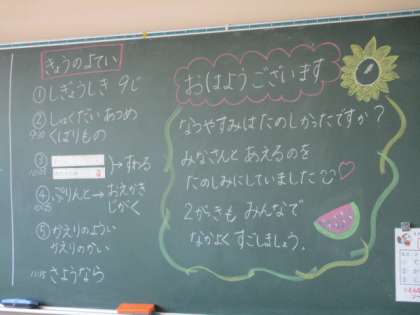 きょうのよてい
① しぎょうしき 9じ
② しゅくだいあつめ
くばりもの
③ →すわる
④ ぷりんと→おえかき
じがく
⑤ かえりのようい
かえりのかい
さようなら
おはようございます
なつやすみはたのしかったですか?
みなさんと あえるのを
たのしみにしていました♡
2がっきも みんなで
なかよく すごしましょう.